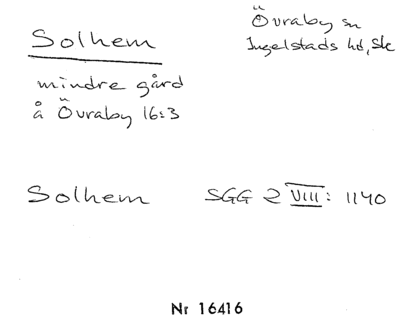 Solhem
Övraby sn
Ingelstads hd, Sk
mindre gård
å Övraby 16:3
Solhem SGG 2 VIII: 1140
Nr 16416